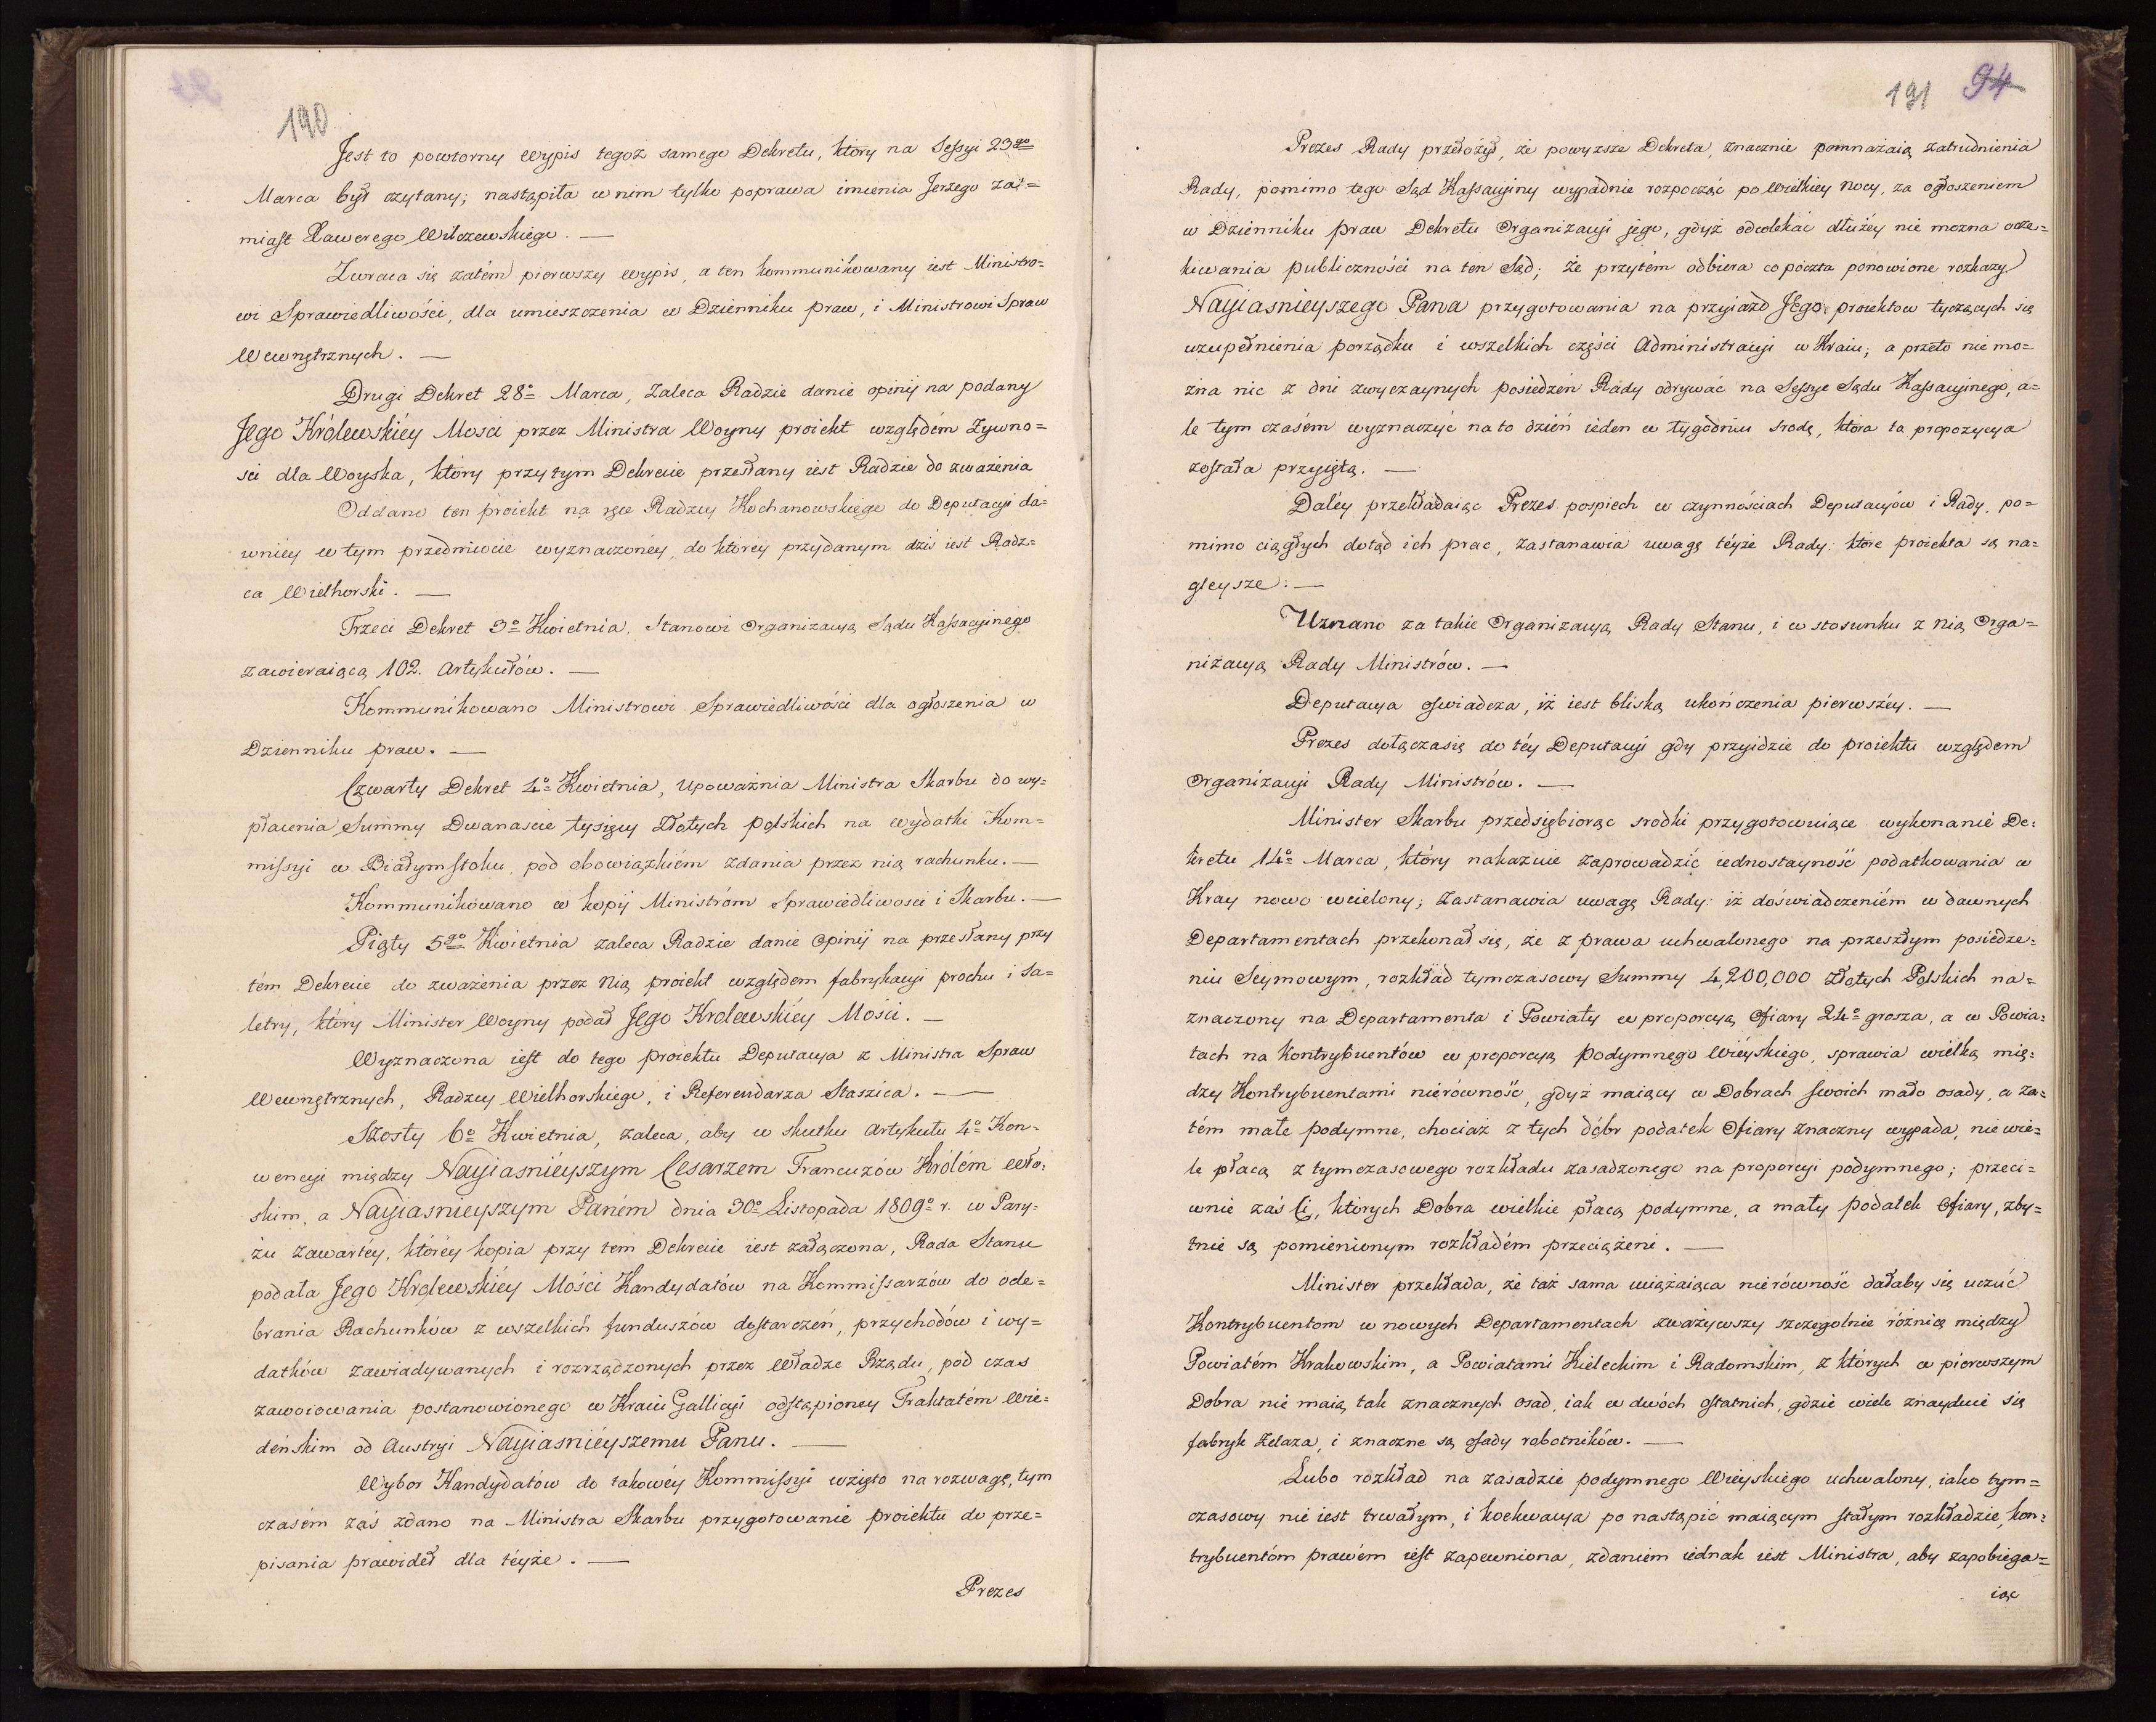 190
Jest to powtorny wypis tegoż samego Dekretu, który na Sessyi 23go
Marca był czytany; nastąpiła w nim tylko poprawa imienia Jerzego za=
miast Xawerego Wilczewskiego. —
Zwraca się zatém pierwszy wypis, a ten kommunikowany iest Ministro=
wi Sprawiedliwości, dla umieszczenia w Dzienniku praw, i Ministrowi Spraw
Wewnętrznych. —
Drugi Dekret 28o Marca, zaleca Radzie danie opinij na podany
Jego Królewskiéy Mosci przez Ministra Woyny proiekt względém Żywno=
sci dla Woyska, który przytym Dekrecie przesłany iest Radzie do zważenia
Oddano ten proiekt na ręce Radzcy Kochanowskiego do Deputacyi da=
wniéy w tym przedmiocie wyznaczonéy, do któréy przydanym dziś iest Radz=
ca Wielhorski. —
Trzeci Dekret 3o Kwietnia, Stanowi Organizacyą Sądu Kassacyinego
zawieraiącą 102. Artykułów. —
Kommunikowano Ministrowi Sprawiedliwości dla ogłoszenia w
Dzienniku praw. —
Czwarty Dekret 4o Kwietnia, Upoważnia Ministra Skarbu do wy=
płacenia Summy Dwanascie tysięcy Złotych polskich na wydatki Kom=
missyi w Białymstoku, pod obowiązkiém zdania przez nią rachunku. —
Kommunikowano w kopij Ministróm Sprawiedliwosci i Skarbu. —
Piąty 5go Kwietnia zaleca Radzie danie Opinij na przesłany przy
tém Dekrecie do zważenia przez Nią proiekt względem fabrykacyi prochu i Sa=
letry, który Minister Woyny podał Jego Krolewskiéy Mości. —
Wyznaczona iest do tego proiektu Deputacya z Ministra Spraw
Wewnętrznych, Radzcy Wielhorskiego, i Referendarza Staszica. —
Szosty 6o Kwietnia, zaleca, aby w skutku Artykułu 4o Kon=
wencyi między Nayiasniéyszym Cesarzem Francuzów Królém Wło=
skim, a Nayiasnieyszym Paném dnia 30o Listopada 1809o r. w Pary=
żu zawartéy, któréy kopia przy tem Dekrecie iest załączona, Rada Stanu
podała Jego Krolewskiéy Mości Kandydatów na Kommissarzów do ode=
brania Rachunków z wszelkich funduszów dostarczeń, przychodów i wy=
datków zawiadywanych i rozrządzonych przez Władze Rządu, pod czas
zawoiowania postanowionego w Kraiu Gallicyi odstąpioney Traktatém Wie=
deńskim od Austryi Nayiasniéyszemu Panu. —
Wybor Kandydatów do takowéy Kommissyi wzięto na rozwagę, tym
czasém zaś zdano na Ministra Skarbu przygotowanie proiektu do prze=
pisania prawideł dla téyże. —
Prezes
191 94
Prezes Rady przełożył, że powyzsze Dekreta, znacznie pomnażaią zatrudnienia
Rady, pomimo tego Sąd Kassacyiny wypadnie rozpocząć po Wielkiey Nocy, za ogłoszeniem
w Dzienniku praw Dekretu Organizacyi jego, gdyż odwlekać dłużéy nie mozna ocze=
kiwania publiczności na ten Sąd; że przytém odbiera co poczta ponowione rozkazy
Nayiasnieyszego Pana przygotowania na przyiazd Jego proiektow tyczących się
uzupełnienia porządku i wszelkich części Administracyi w Kraiu; a przeto nie mo=
żna nic z dni zwyczaynych posiedzeń Rady odrywać na Sessye Sądu Kassacyinego, a=
le tym czasém wyznaczyć na to dzień ieden w tygodniu srodę, która ta propozycya
została przyiętą. —
Daléy przekładaiąc Prezes pospiech w czynnościach Deputacyów i Rady, po=
mimo ciągłych dotąd ich prac, zastanawia uwagę téyże Rady: które proiekta są na=
gleysze: —
Uznano za takie Organizacyą Rady Stanu, i w stosunku z nią Orga=
nizacyą Rady Ministrów. —
Deputacya oswiadcza, iż iest bliską ukończenia pierwszéy. —
Prezes dołącza się do téy Deputacyi gdy przyidzie do proiektu względem
Organizacyi Rady Ministrów. —
Minister Skarbu przedsiębiorąc srodki przygotowuiące wykonanie De=
kretu 14o Marca, który nakazuie zaprowadzić iednostayność podatkowania w
Kray nowo wcielony; Zastanawia uwagę Rady: iż doświadczeniém w dawnych
Departamentach przekonał się, że z prawa uchwalonego na przeszłym posiedze=
niu Seymowym, rozkład tymczasowy Summy 4,200,000 złotych Polskich na=
znaczony na Departamenta i Powiaty w proporcyą Ofiary 24o grosza, a w Powia=
tach na Kontrybuentów w proporcyą podymnego Wiéyskiego, sprawia wielką mię=
dzy Kontrybuentami nierówność, gdyż maiący w Dobrach swoich mało osady, a za=
tém małe podymne, chociaż z tych dóbr podatek Ofiary znaczny wypada, nie wie=
le płacą z tymczasowego rozkładu zasadzonego na proporcyi podymnego; przeci=
wnie zaś Ci, których Dobra wielkie płacą podymne, a mały podatek Ofiary, zby=
tnie są pomienionym rozkładém przeciążeni. —
Minister przekłada, że taż sama uciążaiąca nierówność dałaby się uczuć
Kontrybuentom w nowych Departamentach zważywszy szczegolnie różnicę między
Powiatém Krakowskim, a Powiatami Kieleckim i Radomskim, z których w pierwszym
Dobra nie maią tak znacznych osad, iak w dwóch ostatnich, gdzie wiele znayduie się
fabryk żelaza, i znaczne są osady robotników. —
Lubo rozkład na zasadzie podymnego Wieyskiego uchwalony, iako tym=
czasowy nie iest trwałym, i koekwacya po nastąpić maiącym stałym rozkładzie, kon=
trybuentóm prawém iest zapewniona, zdaniem iednak iest Ministra, aby zapobiega=
iąc